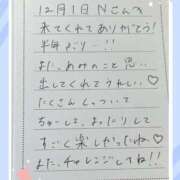 12月1日Nさんへ
来てくれてありがとう!
半年ぶり…!!
また、あみのこと思い
出してくれてうれしい♡
たくさんしゃべって
ちゅーして、まったりして
すごく楽しかったね♡
また、チャレンジしてね!!